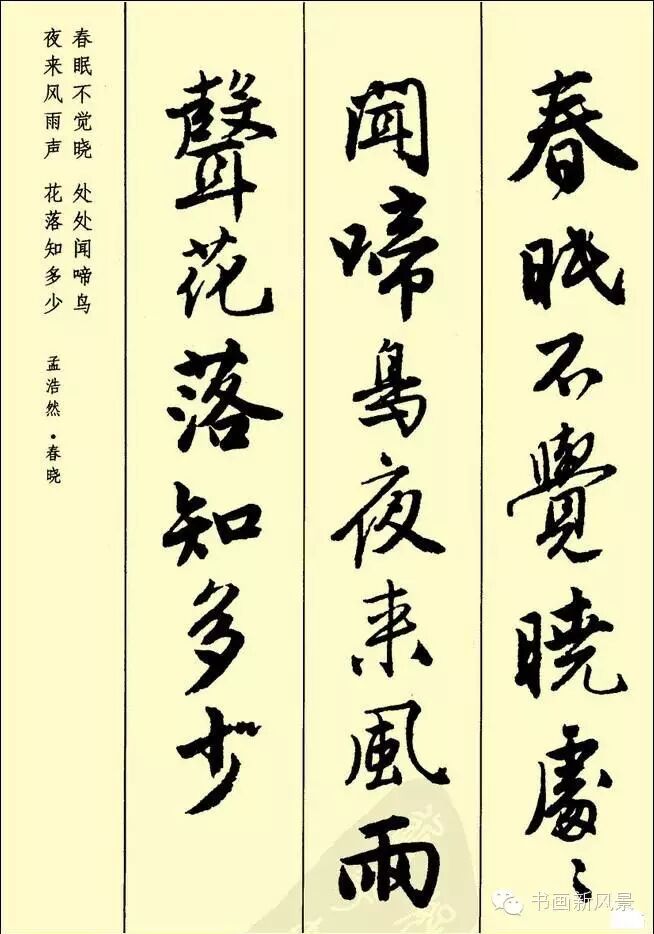 春眠不覺曉處〻
聞啼鳥夜来風雨
聲花落知多少
春眠不觉晓 处处闻啼鸟
夜来风雨声 花落知多少
孟浩然·春晓
书画新风景